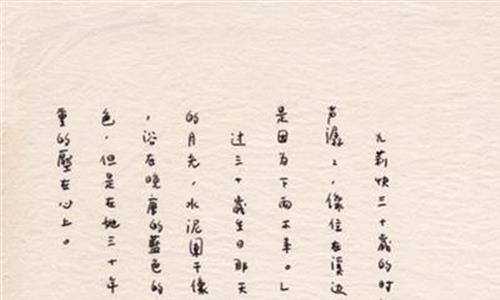 九莉快三十歲的时
声潺〻,像住在溪边
是因为下雨不来。」
过三十歲生日那天
的月光,水泥闌干像
,浴在晚唐的藍色的
色,但是在她三十年
重的壓在心上。